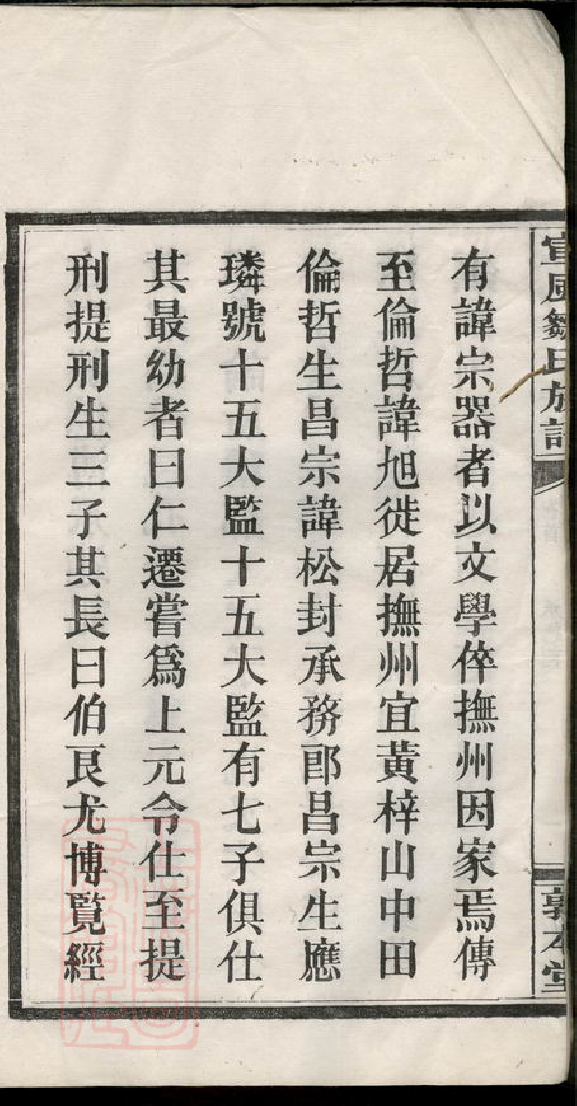 宣風鄒氏族譜
敦本堂
有諱宗器者以文學倅撫州因家焉傳
至倫哲諱旭徙居撫州宜黃梓山中田
倫哲生昌宗諱松封承務郎昌宗生應
璘號十五大監十五大監有七子俱仕
其最幼者曰仁遷嘗為上元令仕至提
刑提刑生三子其長曰伯良尤博覽經